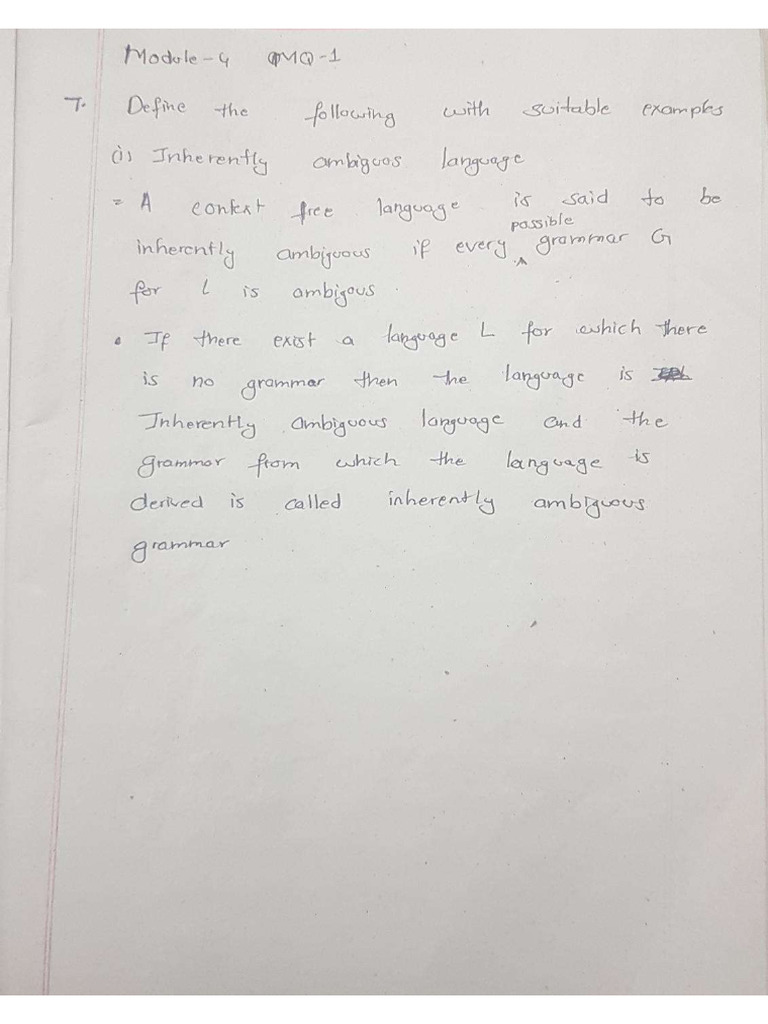 Module-4 MQ-1
7. Define the following with suitable examples
(i) Inherently ambiguos language
= A context free language is said to be
possible
inherently ambiguous if every grammar G
for L is ambigous.
• If there exist a language L for which there
is no grammar then the language is
Inherently ambiguous language and the
grammar from which the language is
derived is called inherently ambiguous
grammar